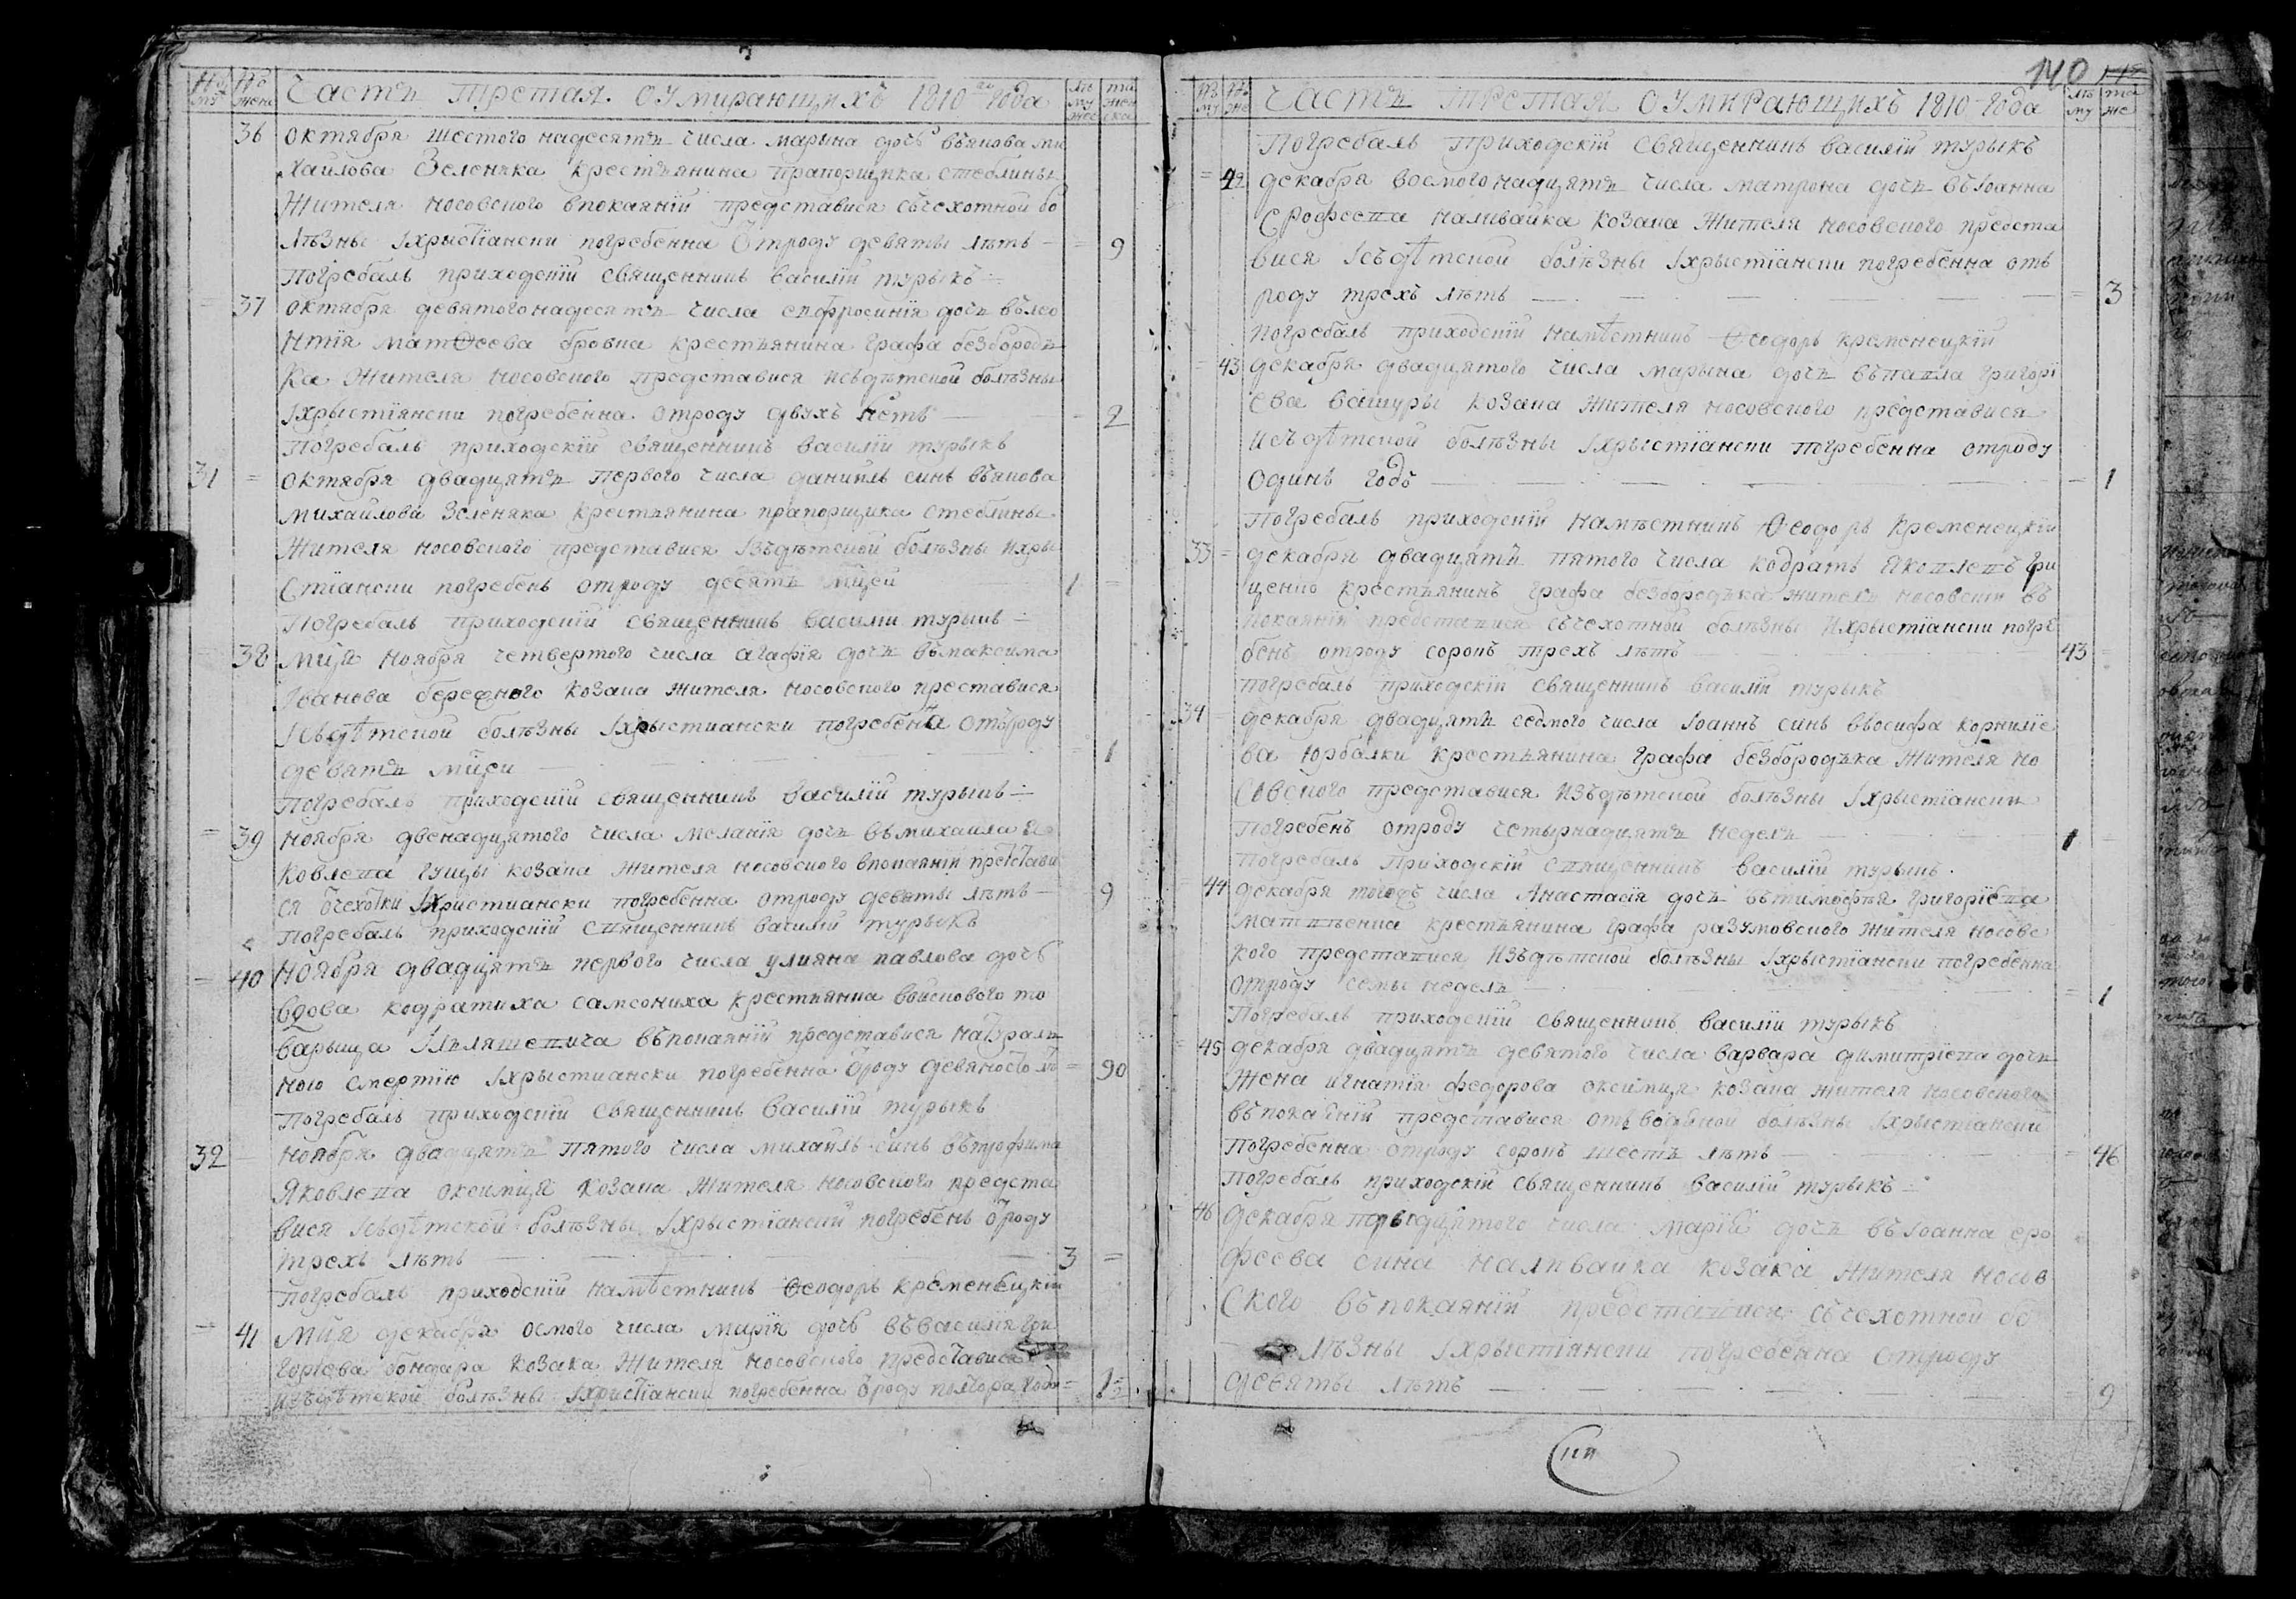 Но му Но жене Часть третая оумирающихъ 1810 го года ле му жес та жен ска
36 октября шестого надесять числа марына дочь въякова ми
хаилова Зеленяка крестьянина прапорщика стеблины
Жителя носовского впокаянїи представися съчехотной бо
лѣзны Iхрыстїански погребенна Отроду девяты лѣтъ = 9
Погребалъ приходскїй священникъ василїй турыкъ
37 октября девятогонадесять числа ефросинїя дочь въле
нтїя матѳеева бровка крестьянина графа безбородь
ка Жителя носовского представися исъдѣтской болѣзны
Iхрыстїянски погребенна отроду двухъ летъ = 2
Погребалъ приходскїй священникъ василїй турыкъ
31 = октября двадцять первого числа данiилъ синъ въякова
михаилова Зеленяка крестьянина прапорщика стеблины
Жителя носовского представися Iзъдѣтской болѣзны Ихры
стїански погребенъ отроду десять мцей 1 =
Погребалъ приходскїй священникъ василїй турыкъ
38 мця ноября четвертого числа агафїя дочь въмаксима
Iванова бережного козака жителя носовского преставися
Iсъдѣтской болѣзны Iхрыстиански погребена отъроду
девять мцей = 1
Погребалъ приходскїй священникъ василїй турыкъ
= 39 Ноября двенадцятого числа меланїя дочь въмихаила я
ковлева гущы козака жителя носовского впокаянїи представи
ся ѿчехотки Iхристиански погребенна отроду девяты лѣтъ 9
Погребалъ приходскїй священникъ василїй турыкъ
= 40 Ноября двадцять первого числа улияна павлова дочь
вдова кодратиха самсониха крестьянка войскового то
варыща Iляшевича въпокаянїй представися натураль
ною смертїю Iхрыстиански погребенна ѿроду девяносто лѣ = 90
Погребалъ приходскїй священникъ василїй турыкъ
32 ноября двадцять пятого числа михаилъ синъ вътрофима
Яковлева оксимця козака жителя носовского предста
вися Iсъдѣтской болѣзны Iхрыстїански погребенъ ѿроду
трехъ лѣтъ 3 =
Погребалъ приходскїй намѣстникъ Ѳеодоръ кременецкїй
= 41 Мця декабря осмого числа марїя дочь въвасилїя гри
горїева бондара козака Жителя носовского представися
изъдѣтской болѣзны Iхристїански погребенна ѿроду полтора года = 1½
140
Но му Но же Часть третая оумирающихъ 1810 года лѣ му та же
Погребалъ приходскїй священникъ василїй турыкъ
= 42 декабря восмого надцять числа матрона дочь въIоанна
Ерофеева наливайка козака Жителя носовского предста
вися Iсъдѣтской болѣзны Iхрыстїански погребенна отъ
роду трехъ лѣтъ = 3
Погребалъ приходскїй намѣстникъ Ѳеодоръ кременецкїй
= 43 декабря двадцятого числа марына дочь въпавла григорї
ева вашуры козака жителя носовского представися
исъдѣтской болѣзны Iхрыстїански погребенна отроду
одинъ годъ = 1
Погребалъ приходскїй намѣстникъ Ѳеодоръ кременецкїй
33 = декабря двадцять пятого числа кодратъ яковлевъ гри
ценко крестьянинъ графа безбородька житель носовскїй въ
покаянїй представися съчехотной болѣзны Ихрыстїански погре
бенъ отроду сорокъ трехъ лѣтъ 43 =
погребалъ приходскїй священникъ василїй турыкъ
34 декабря двадцять седмого числа Iоаннъ синъ въосифа корнилїе
ва юрбалки крестьянина графа безбородька Жителя но
совского представися изъдѣтской болѣзны Iхрыстїански
погребенъ отроду четырнадцять недель 1
Погребалъ приходскїй священникъ василїй турыкъ
44 декабря тогожъ числа Анастасїя дочь вътимофея григорїева
матвѣенка крестьянина графа разумовского жителя носовс
кого представися изъдѣтской болѣзны Iхрыстїански погребенна
отроду семы недель = 1
Погребалъ приходскїй священникъ василїй турыкъ
= 45 декабря двадцять девятого числа варвара димитрїева дочь
жена игнатїя федорова оксимця козака жителя носовского
въпокаянїй представися отъ болѣзны Iхрыстїански
погребенна отроду сорокъ шесть лѣтъ = 46
Погребалъ приходскїй священникъ василїй турыкъ
= 46 декабря тридцятого числа марїя дочь въIоанна еро
феева сина наливайка козака жителя носов
ского въпокаянїй представися съчехотной бо
лѣзны Iхрыстїянски погребенна отроду
девяты лѣтъ = 9